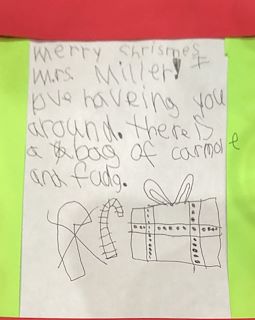 merry chrismes
Mrs. Miller! I
love haveing you
around. there is
a bag of carmole
and fudg.